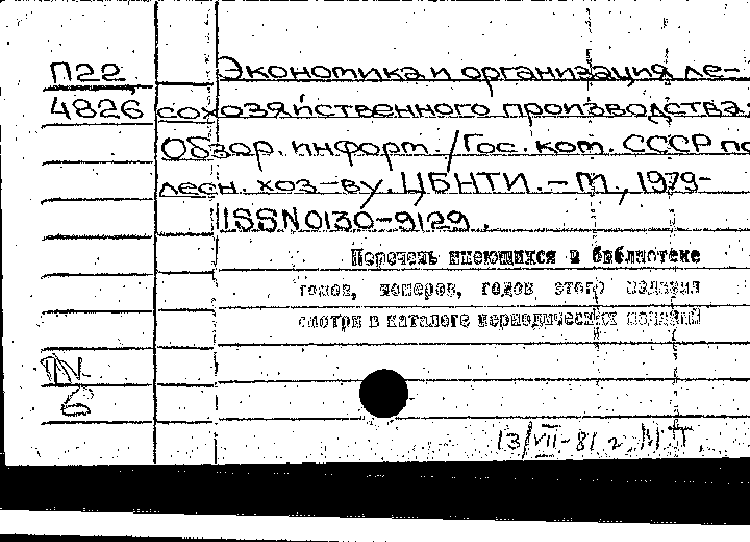 П22 Экономика и организация ле-
4826 сохозяйственного производства:
Обзор. информ./Гос. ком. СССР по
лесн. хоз-ву. ЦБНТИ. – М., 1979-
ISSN 0130-9129.
Перечень имеющихся в библиотеке
томов, номеров, годов этого издания
смотри в каталоге периодических изданий
6
13/VII-81 г. М.П.